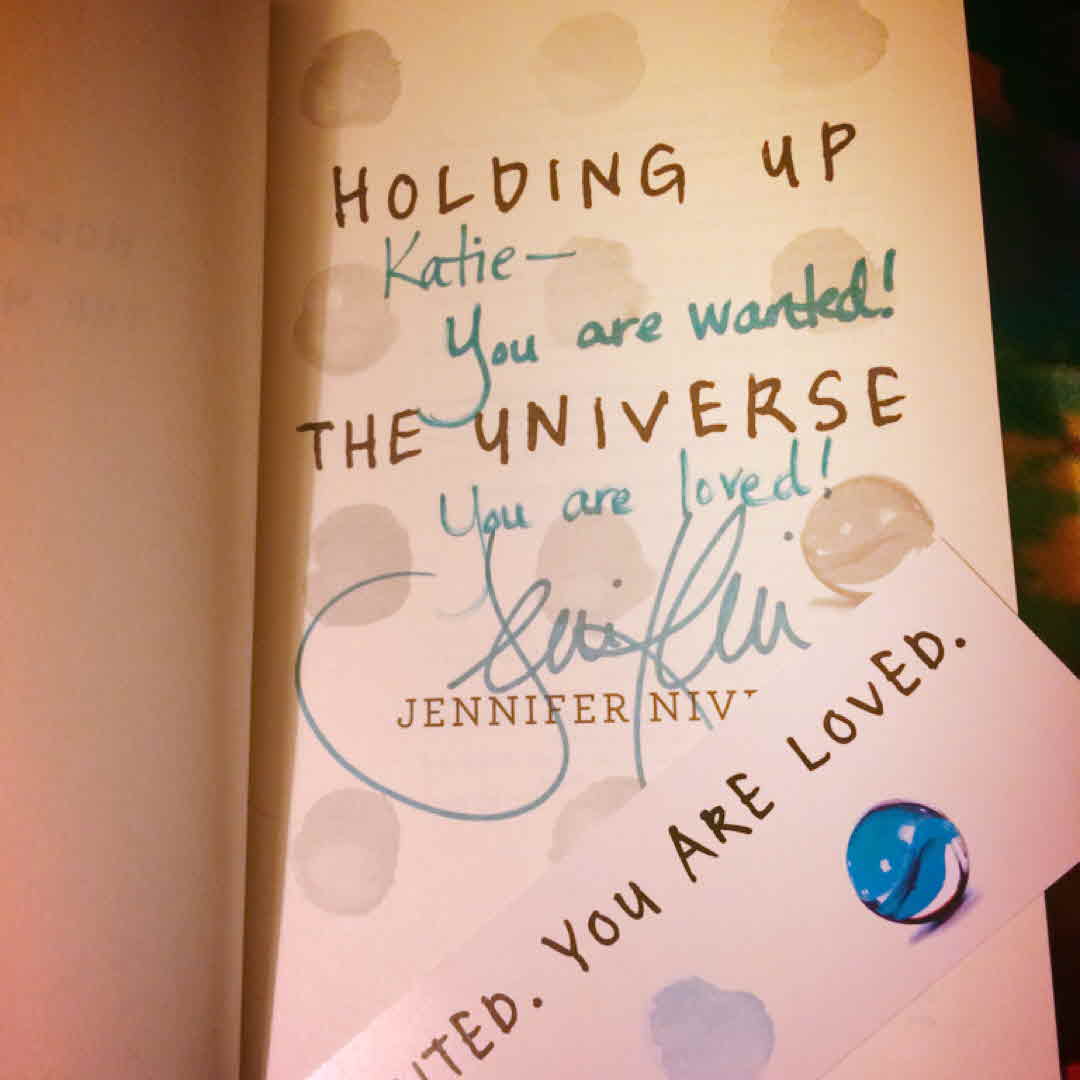 HOLDING UP
Katie—
You are wanted!
THE UNIVERSE
You are loved!
JENNIFER NIV
NTED. YOU ARE LOVED.